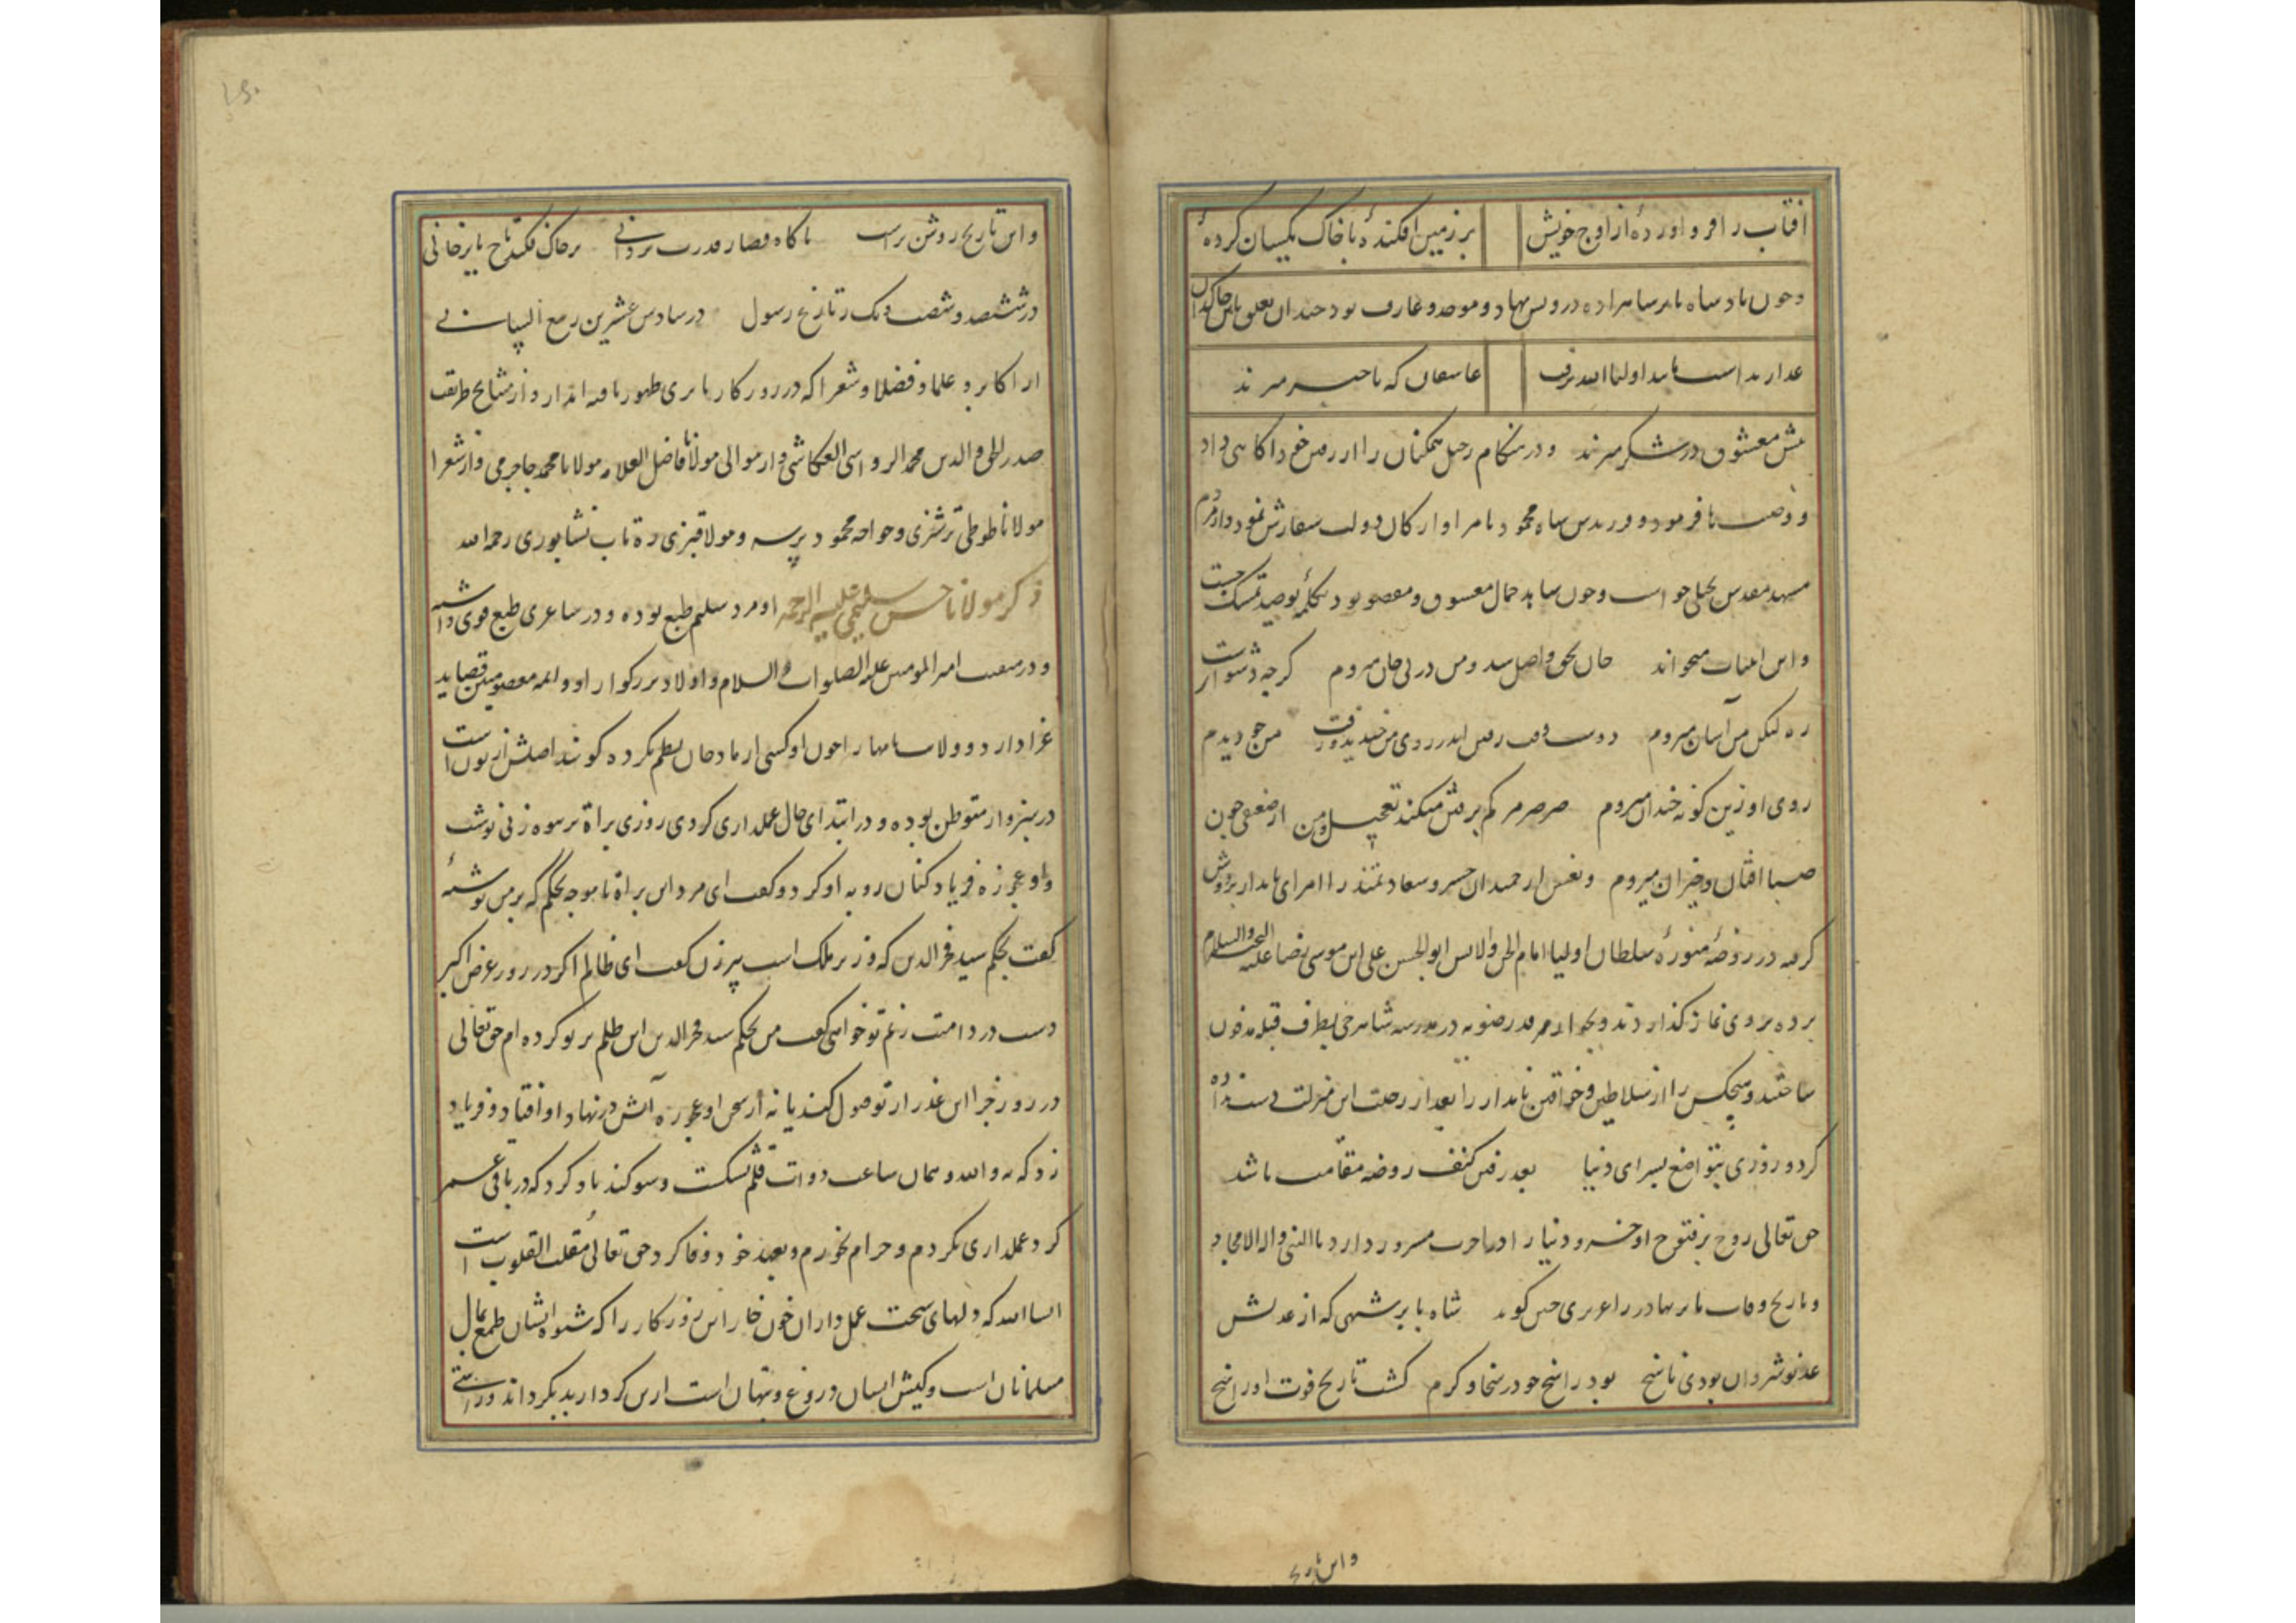 افتاب را فرو اورده از اوج خویش برزمین افکنده با خاک یکسان کرده
وحون بادساه بابر ساهراده درویس نهاد و موحد و عارف بود حندان بعلق باین خاکدان
عاسقان که باخبر میرند
پیش معشوق در شکر میرند و در هنکام رحیل همکنان را از رفتن خود اکاهی داد
و وصیت ها فرمود و فرزندش ساه محمود بامرا و ارکان دولت سفارش نمود و از مردم
مسهد مقدس بحلی حواست وحون ساهد حمال معسوق و مقصود بود بکلمه توحید تمسک جست
و این ابیات میخواند جان بحق واصل شد ومن در پی جان میروم کرچه دشوارست
ره لیکن من آسان میروم دوست وقت رفتن اندر روی من خندید ورفت من چو دیدم
روی او زین کونه خندان میروم صرصر مرکم برفتن میکند تعجیل ومن از ضعیفی چون
صبا افتان وخیزان میروم و نعش ان جمشیدان خسرو سعادتمند را امرای نامدار بر دوش
کرفته در روضه منوره سلطان اولیا امام الجن والانس ابو الحسن علی ابن موسی رضا علیه التحیة والسلام
برده بر وی نماز کذاردند و بجوار مرقد رضویه در مدرسه شاهرخی بطرف قبله مدفون
ساختند وهیچکس را از سلاطین وخواقین نامدار را بعد از رحلت این منزلت دست نداده
کر دو روزی بتواضع بسر ای دنیا بعد رفتن کنف روضه مقامت باشد
حق تعالی روح پر فتوح او خسرو دنیا را در اخرت مسرور دارد بالنبی واله الامجاد
وتاریخ وفات بابر بهادر را عزیزی چنین کوید شاه بابر شهی که از عدلش
عدل نوشیروان بودی ناسخ بود راسخ چو در سخا و کرم کشت تاریخ فوت او راسخ
واین تاریخ
واین تاریخ روشن تراست ناکاه قضا ز قدرت یزدانی برخاک فکند تاج بابرخانی
در ششصد وشصت ویک ز تاریخ رسول در سادس عشرین ربیع الثانی
از اکابر و علما و فضلا و شعرا که در روزکار بابری ظهور یافته اند از واز مشایخ طریقت
صدر الحق والدین محمد الرواسی العکاشی واز موالی مولانا فاضل العلامه مولانا محمد جاجرمی واز شعرا
مولانا طوطی ترشیزی وخواجه محمود برسه و مولا قنبری ده تاب نشابوری رحمه الله
ذکر مولانا حسن سلیمی علیه الرحمه او مرد سلیم طبع بوده و در شاعری طبع قوی داشته
و در منقبت امیر المومنین علیه الصلوات والسلام و اولاد بزرکوار او و ائمه معصومین قصاید
غرا دارد و ولایت نامها را چون او کسی از مادحان نظم نکرده کویند اصلش از تون است
در سبزوار متوطن بوده و در ابتدای حال عملداری کردی روزی براة بر بیوه زنی نوشت
واو عجوزه فریاد کنان رو به او کرد و کفت ای مرد این براة نا موجه بحکم که بر من نوشته
کفت بحکم سید فخرالدین که وزیر ملک است پیرزن کفت ای ظالم اکر در روز عرض اکبر
دست در دامنت زنم تو خواهی کفت من بحکم سید فخرالدین این ظلم بر تو کرده ام حق تعالی
در روز جزا این عذر از تو قبول کند یا نه از سخن او عجوزه آتش در نهاد او افتاد و فریاد
زد که نه والله و همان ساعت دوات قلم بشکست و سوکند یاد کرد که در باقی عمر
کرد عملداری نکردم و حرام نخورم و بعهد خود وفا کرد حق تعالی مقلب القلوب است
انشاالله که دلهای سخت عمل داران خون خار این روزکار را که شیوه ایشان طمع بمال
مسلمانان است و کیش ایشان دروغ و بهتان است ازین کردار بد بکرداند و راستی